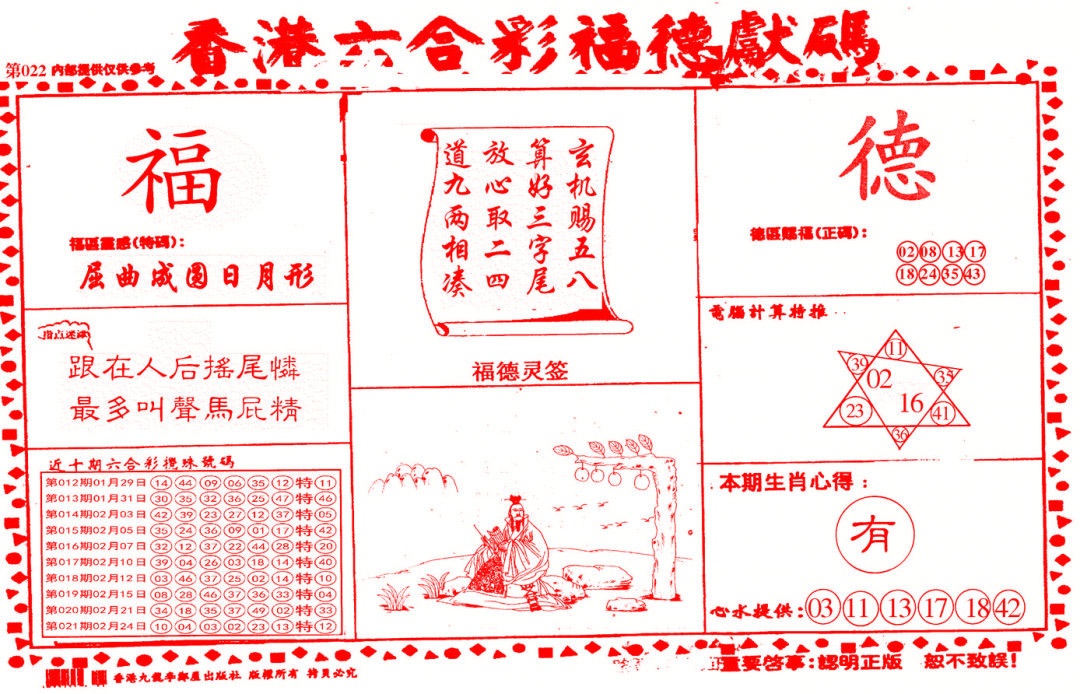 香港六合彩福德獻碼
第022 内部提供仅供参考
福
福區靈感(特碼):
屈曲成圆日月形
指点迷津
跟在人后搖尾憐
最多叫聲馬屁精
近十期六合彩攪珠號碼
第012期01月29日 14 44 09 06 35 12 特 11
第013期01月31日 30 35 32 36 25 47 特 46
第014期02月03日 42 39 23 27 12 37 特 05
第015期02月05日 35 24 36 09 01 17 特 42
第016期02月07日 32 12 37 22 44 28 特 20
第017期02月10日 39 04 26 03 18 14 特 40
第018期02月12日 03 46 37 25 02 14 特 10
第019期02月15日 08 28 46 37 36 33 特 04
第020期02月21日 34 18 35 37 49 02 特 33
第021期02月24日 10 04 03 02 23 13 特 12
玄机赐五八
算好三字尾
放心取二四
道九两相凑
福德灵签
德
德區賜福(正碼):
02 08 13 17
18 24 35 43
電腦計算特推
11
39 35
02
16
23 41
36
本期生肖心得:
有
心水提供: 03 11 13 17 18 42
香港九龍李鄭屋出版社 版權所有 拷貝必究
重要啓事:認明正版 恕不致誤!